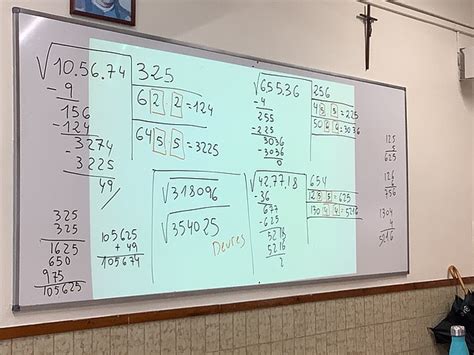 √10.56.74 325
-9
156 62 2 = 124
-124
3274 645 5 = 3225
-3225
49
325
325
1625
650
975
105625
105625
+ 49
105674
√6.55.36 256
-4
255 45 5 = 225
-225
3036 506 6 = 3036
-3036
0
√318096
√354025
Deures
√42.77.18 654
-36
677 125 5 = 625
-625
5218 1304 4 = 5216
5216
2
125
5
625
126
6
756
1304
4
5216